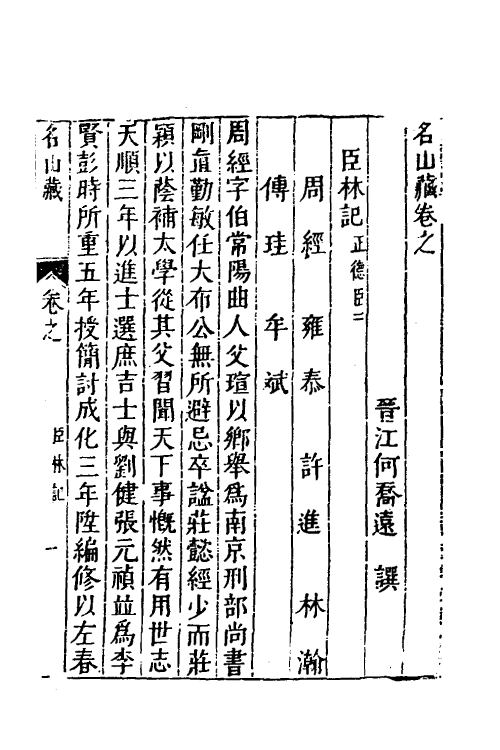 名山藏卷之
晉江何喬遠 譔
臣林記 正德臣二
周經 雍泰 許進 林瀚
傅珪 牟斌
周經字伯常陽曲人父瑄以鄉舉爲南京刑部尚書
剛直勤敏任大布公無所避忌卒諡莊懿經少而莊
穎以蔭補太學從其父習聞天下事慨然有用世志
天順三年以進士選庶吉士與劉健張元禎並爲李
賢彭時所重五年授簡討成化三年陞編修以左春
名山藏 卷之 臣林記 一